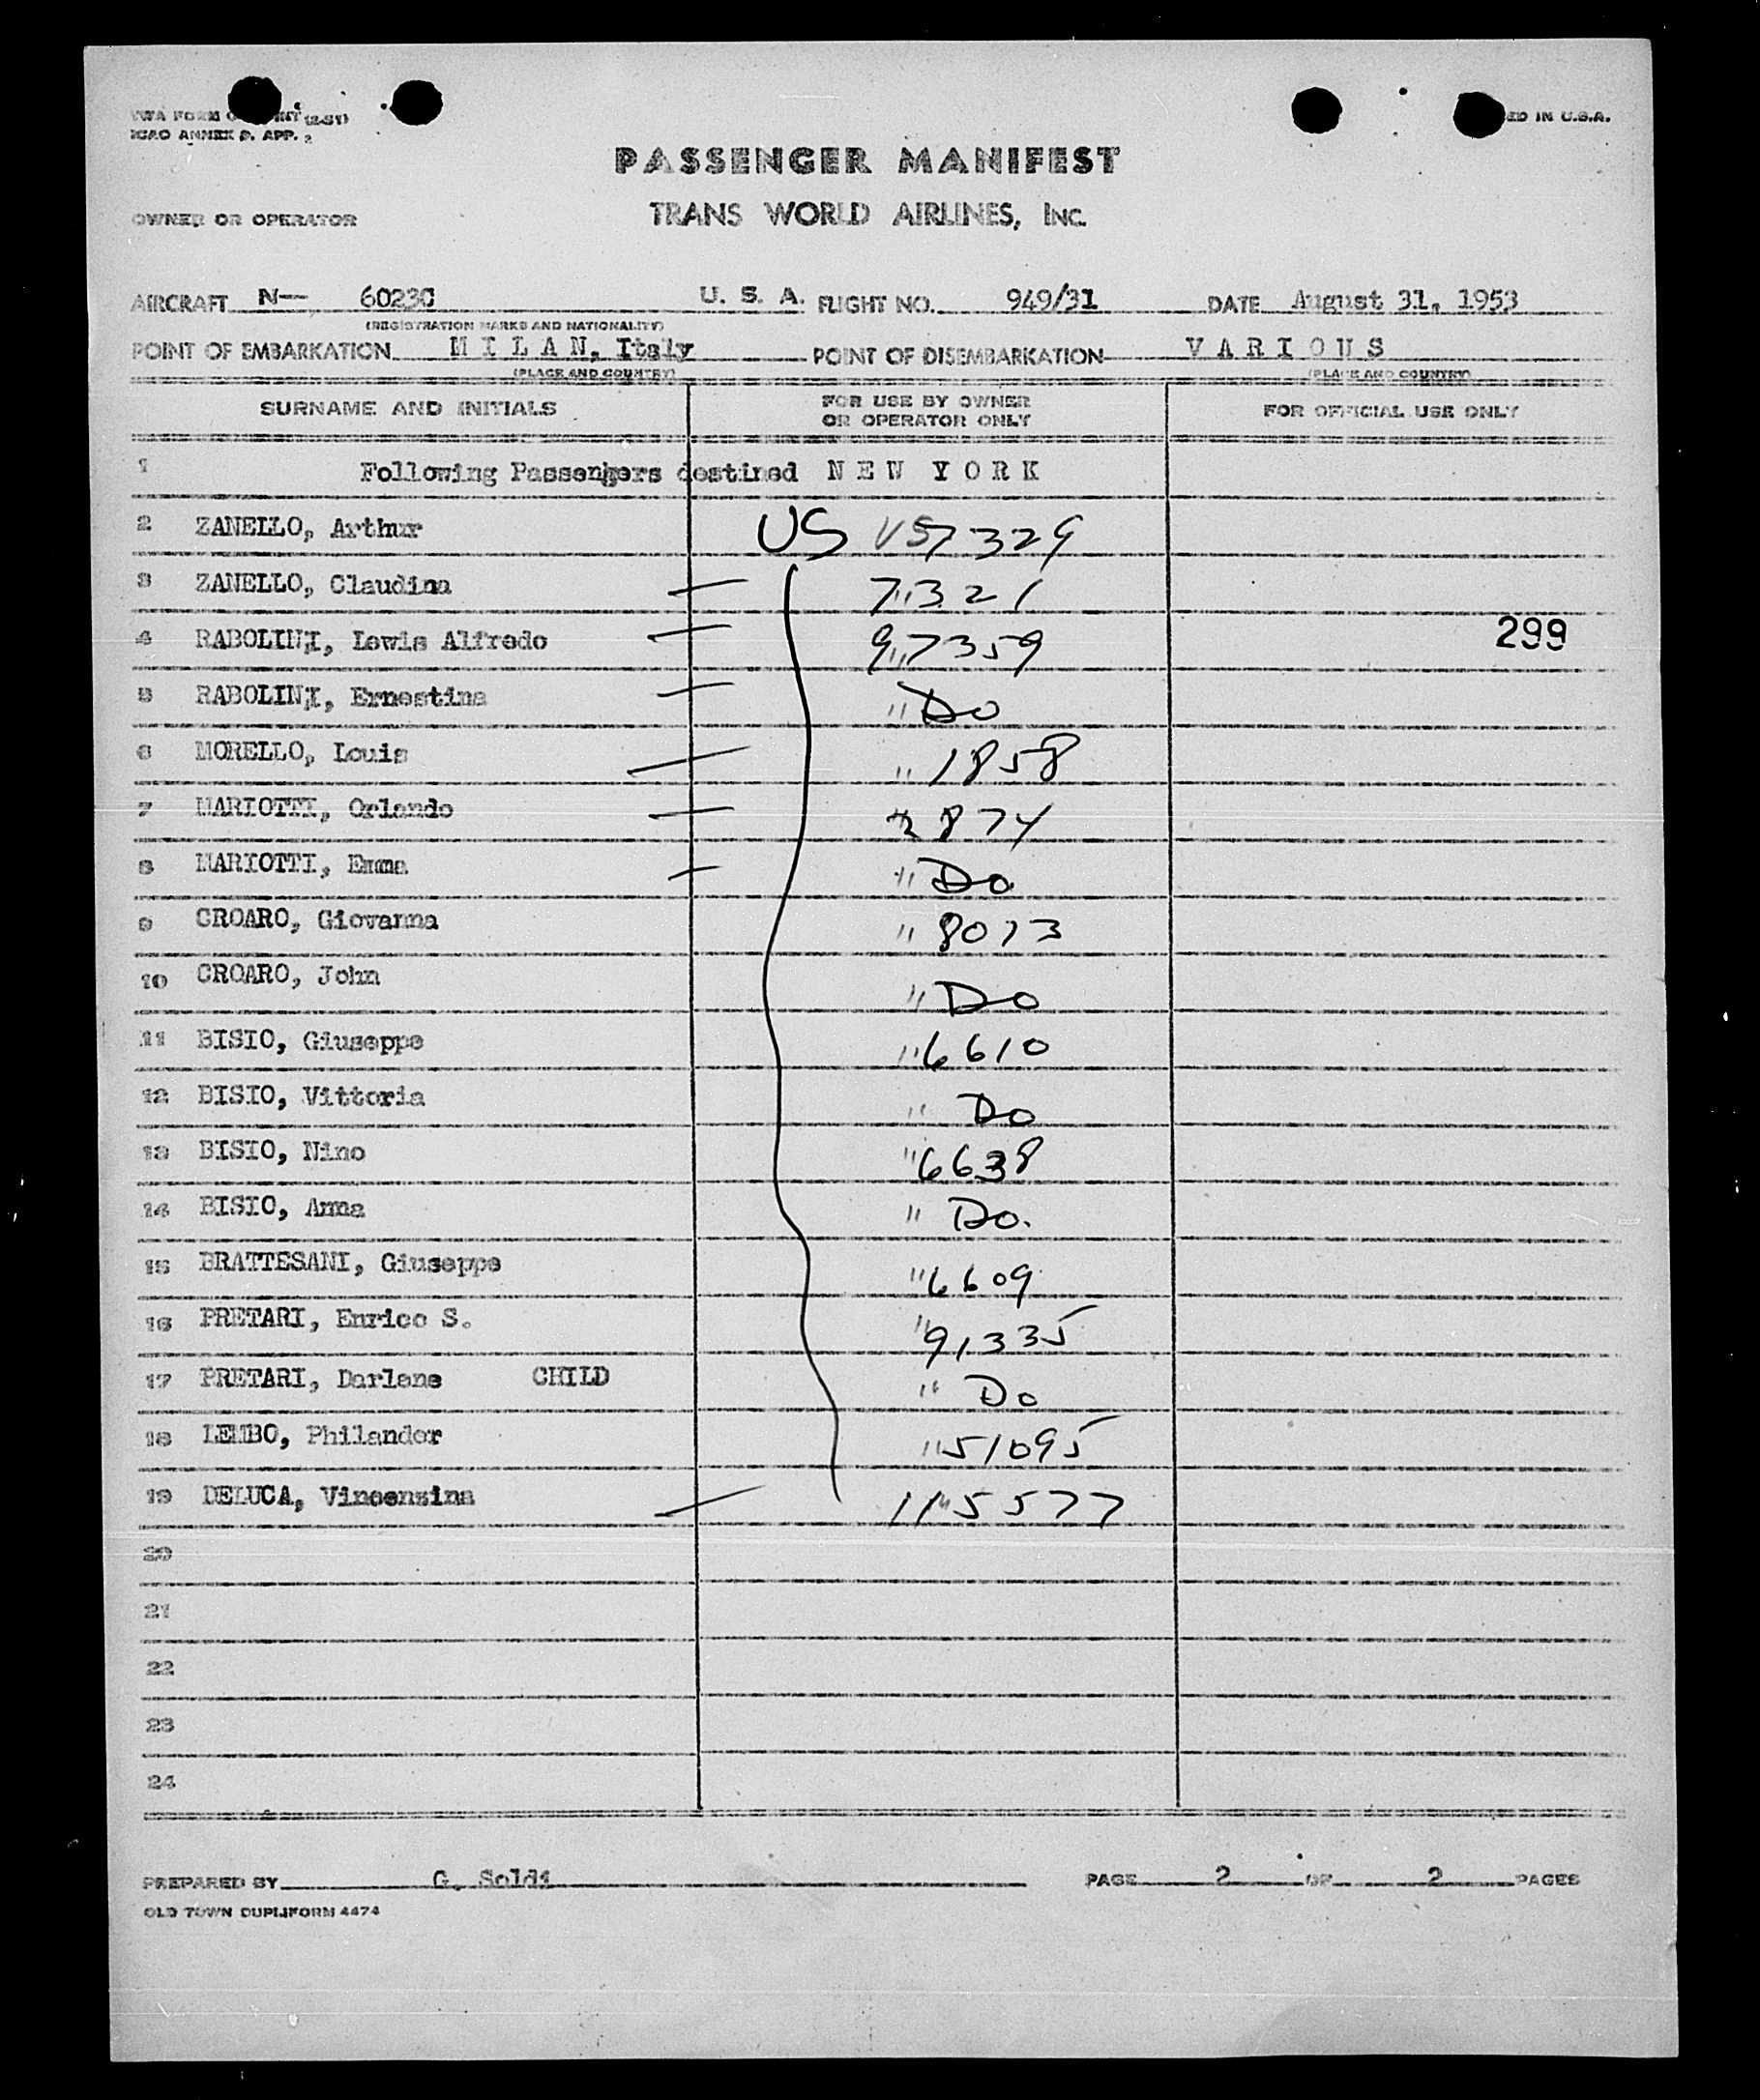 TWA FORM (2-51)
ICAO ANNEX 9. APP. 2
ED IN U.S.A.
PASSENGER MANIFEST
OWNER OR OPERATOR TRANS WORLD AIRLINES, INC.
AIRCRAFT N— 6023C U. S. A. FLIGHT NO. 949/31 DATE August 31, 1953
(REGISTRATION MARKS AND NATIONALITY)
POINT OF EMBARKATION M I L A N, Italy POINT OF DISEMBARKATION V A R I O U S
(PLACE AND COUNTRY) (PLACE AND COUNTRY)
SURNAME AND INITIALS FOR USE BY OWNER OR OPERATOR ONLY FOR OFFICIAL USE ONLY
1 Following Passengers destined N E W Y O R K
2 ZANELLO, Arthur US US 7329
3 ZANELLO, Claudina — 7 " 321
4 RABOLINI, Lewis Alfredo — 9 " 7359 299
5 RABOLINI, Ernestina — " Do
6 MORELLO, Louis — " 1858
7 MARIOTTI, Orlando — 2874
8 MARIOTTI, Emma — " Do
9 CROARO, Giovanna " 8013
10 CROARO, John " Do
11 BISIO, Giuseppe " 6610
12 BISIO, Vittoria " Do
13 BISIO, Nino " 6638
14 BISIO, Anna " Do.
15 BRATTESANI, Giuseppe " 6609
16 PRETARI, Enrico S. " 91335
17 PRETARI, Darlene CHILD " Do
18 LEMBO, Philander " 51095
19 DELUCA, Vincenzina — 115577
20
21
22
23
24
PREPARED BY G. Soldi PAGE 2 OF 2 PAGES
OLD TOWN DUPLIFORM 4474